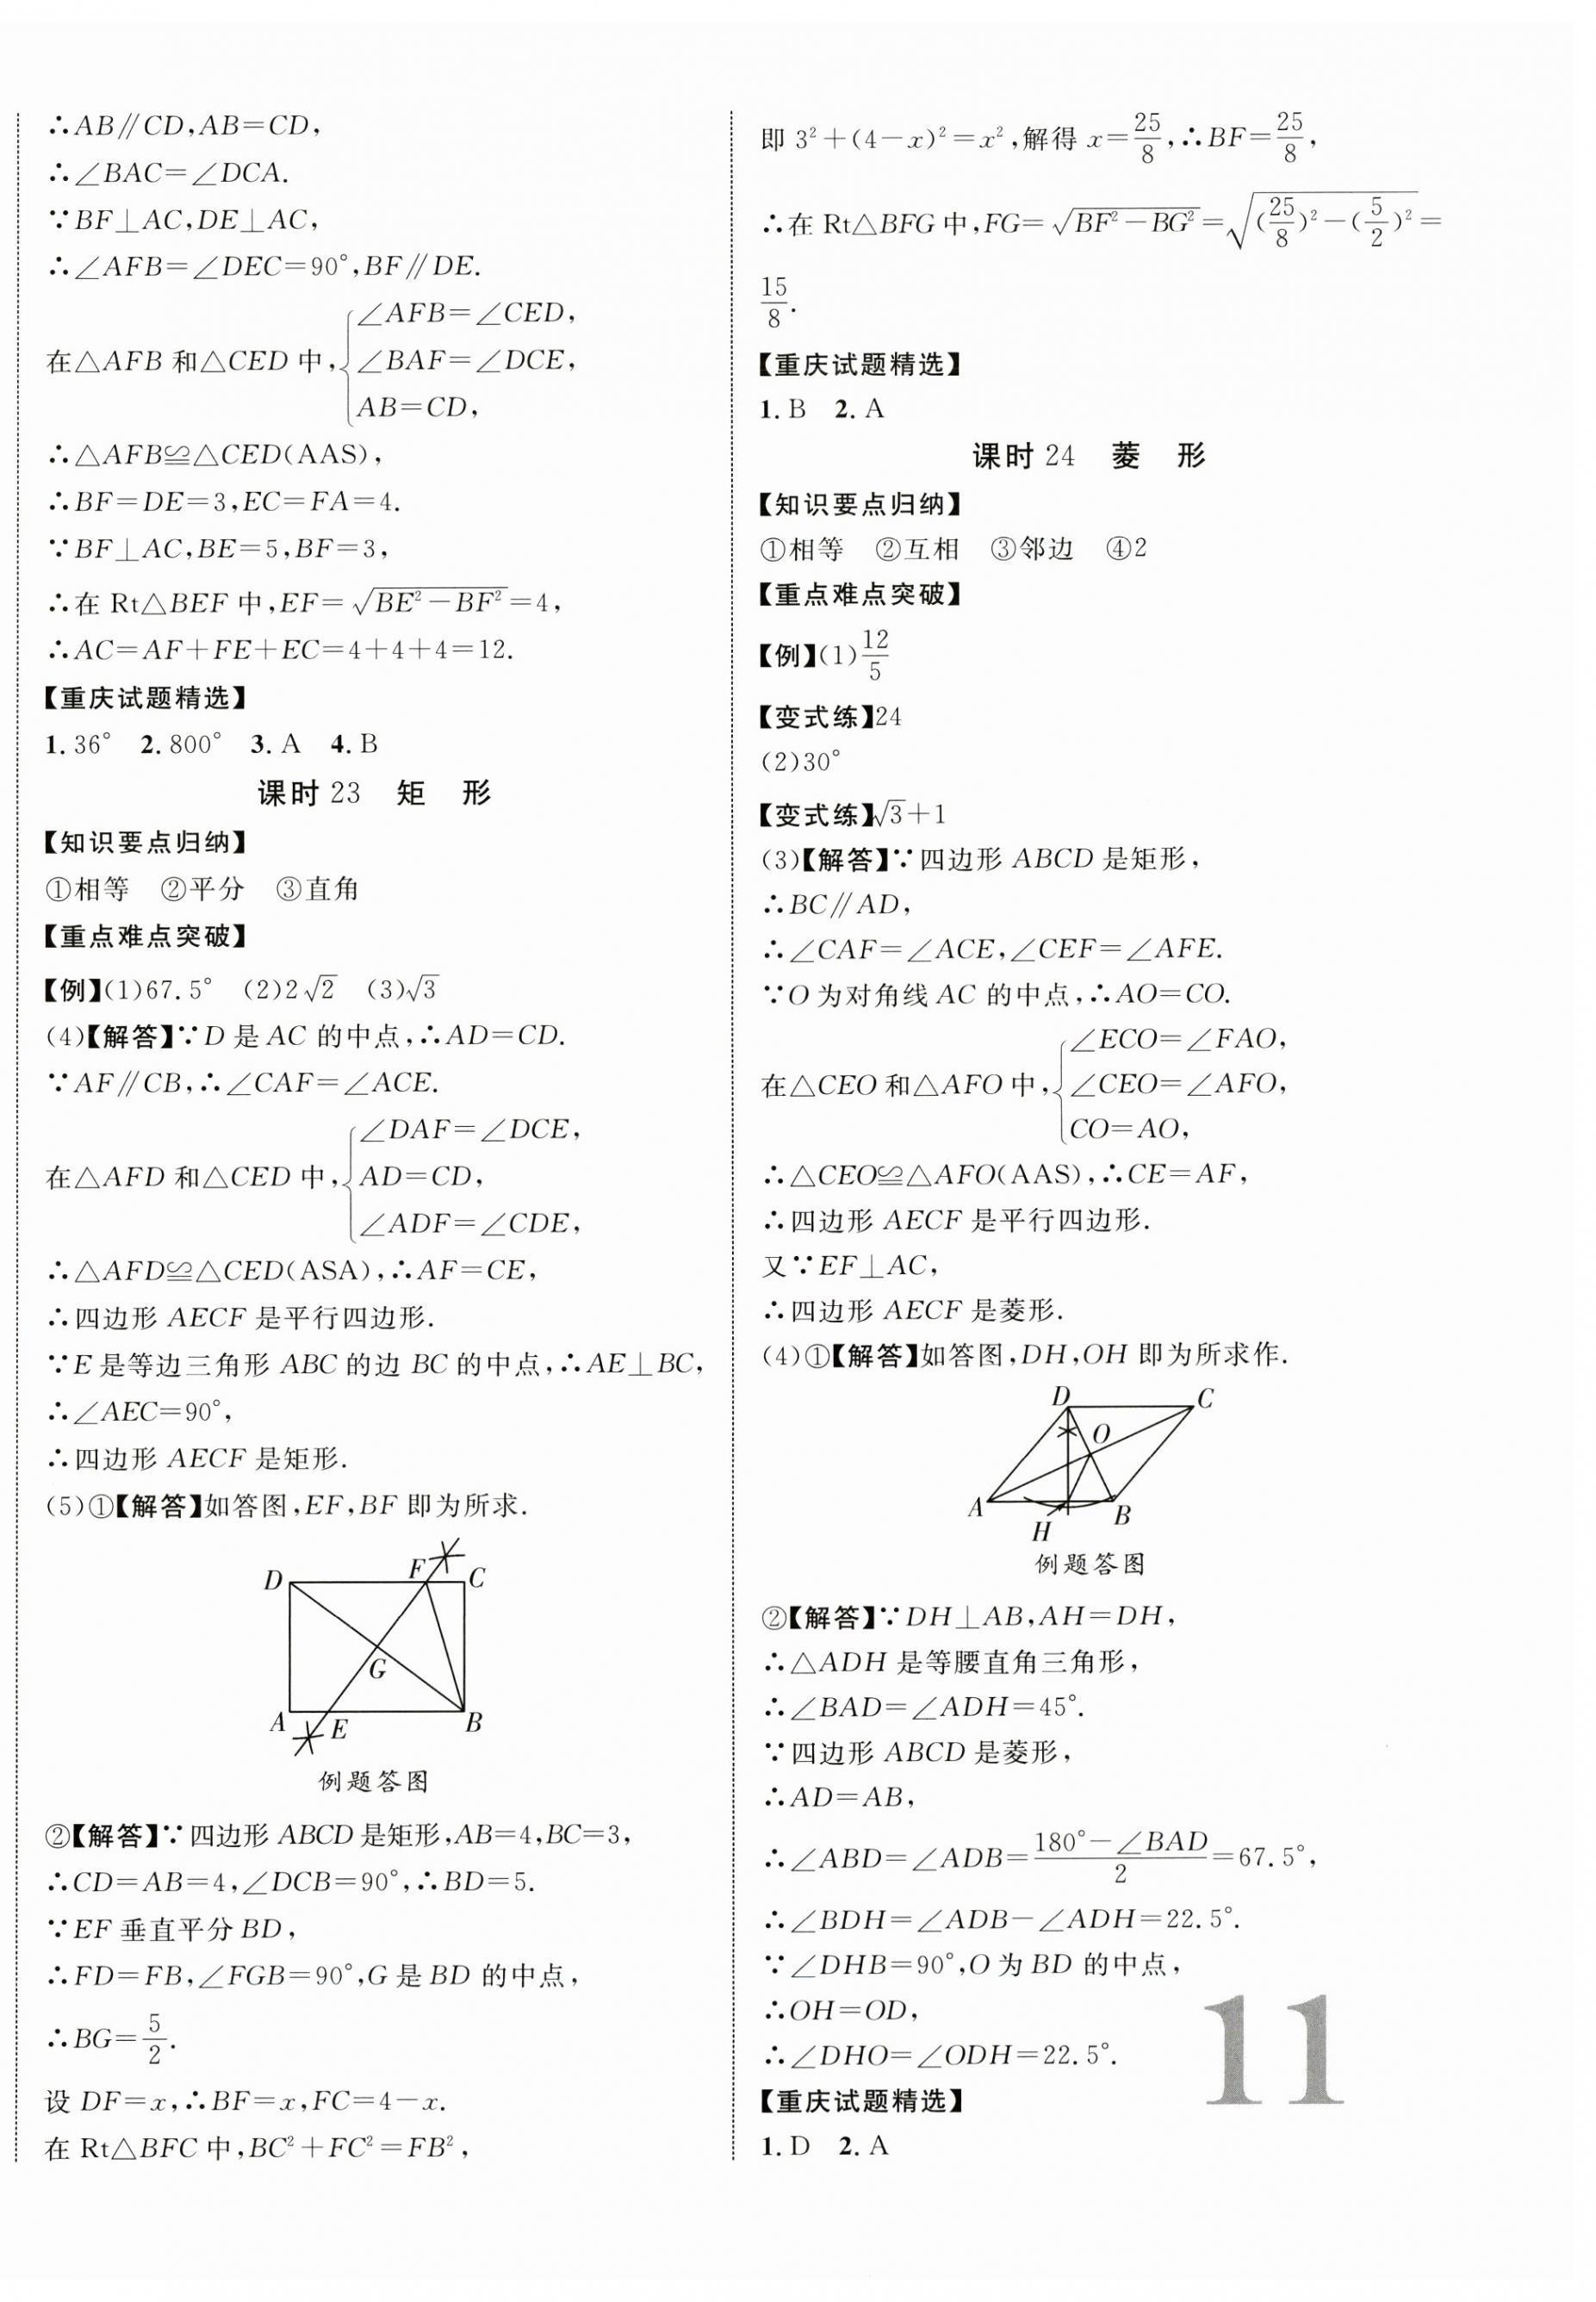 ∴AB∥CD,AB=CD,
∴∠BAC=∠DCA.
∵BF⊥AC,DE⊥AC,
∴∠AFB=∠DEC=90°,BF∥DE.
在△AFB 和△CED 中,{∠AFB=∠CED,
∠BAF=∠DCE,
AB=CD,
∴△AFB≌△CED(AAS),
∴BF=DE=3,EC=FA=4.
∵BF⊥AC,BE=5,BF=3,
∴在 Rt△BEF 中,EF=√(BE²-BF²)=4,
∴AC=AF+FE+EC=4+4+4=12.
【重庆试题精选】
1.36° 2.800° 3.A 4.B
课时 23 矩 形
【知识要点归纳】
①相等 ②平分 ③直角
【重点难点突破】
【例】(1)67.5° (2)2√2 (3)√3
(4)【解答】∵D 是 AC 的中点,∴AD=CD.
∵AF∥CB,∴∠CAF=∠ACE.
在△AFD 和△CED 中,{∠DAF=∠DCE,
AD=CD,
∠ADF=∠CDE,
∴△AFD≌△CED(ASA),∴AF=CE,
∴四边形 AECF 是平行四边形.
∵E 是等边三角形 ABC 的边 BC 的中点,∴AE⊥BC,
∴∠AEC=90°,
∴四边形 AECF 是矩形.
(5)①【解答】如答图,EF,BF 即为所求.
D F C
G
A E B
例题答图
②【解答】∵四边形 ABCD 是矩形,AB=4,BC=3,
∴CD=AB=4,∠DCB=90°,∴BD=5.
∵EF 垂直平分 BD,
∴FD=FB,∠FGB=90°,G 是 BD 的中点,
∴BG=5/2.
设 DF=x,∴BF=x,FC=4-x.
在 Rt△BFC 中,BC²+FC²=FB²,
即 3²+(4-x)²=x²,解得 x=25/8,∴BF=25/8,
∴在 Rt△BFG 中,FG=√(BF²-BG²)=√((25/8)²-(5/2)²)=
15/8.
【重庆试题精选】
1.B 2.A
课时 24 菱 形
【知识要点归纳】
①相等 ②互相 ③邻边 ④2
【重点难点突破】
【例】(1)12/5
【变式练】24
(2)30°
【变式练】√3+1
(3)【解答】∵四边形 ABCD 是矩形,
∴BC∥AD,
∴∠CAF=∠ACE,∠CEF=∠AFE.
∵O 为对角线 AC 的中点,∴AO=CO.
在△CEO 和△AFO 中,{∠ECO=∠FAO,
∠CEO=∠AFO,
CO=AO,
∴△CEO≌△AFO(AAS),∴CE=AF,
∴四边形 AECF 是平行四边形.
又∵EF⊥AC,
∴四边形 AECF 是菱形.
(4)①【解答】如答图,DH,OH 即为所求作.
D C
O
A B
H
例题答图
②【解答】∵DH⊥AB,AH=DH,
∴△ADH 是等腰直角三角形,
∴∠BAD=∠ADH=45°.
∵四边形 ABCD 是菱形,
∴AD=AB,
∴∠ABD=∠ADB=(180°-∠BAD)/2=67.5°,
∴∠BDH=∠ADB-∠ADH=22.5°.
∵∠DHB=90°,O 为 BD 的中点,
∴OH=OD,
∴∠DHO=∠ODH=22.5°.
【重庆试题精选】
1.D 2.A
11